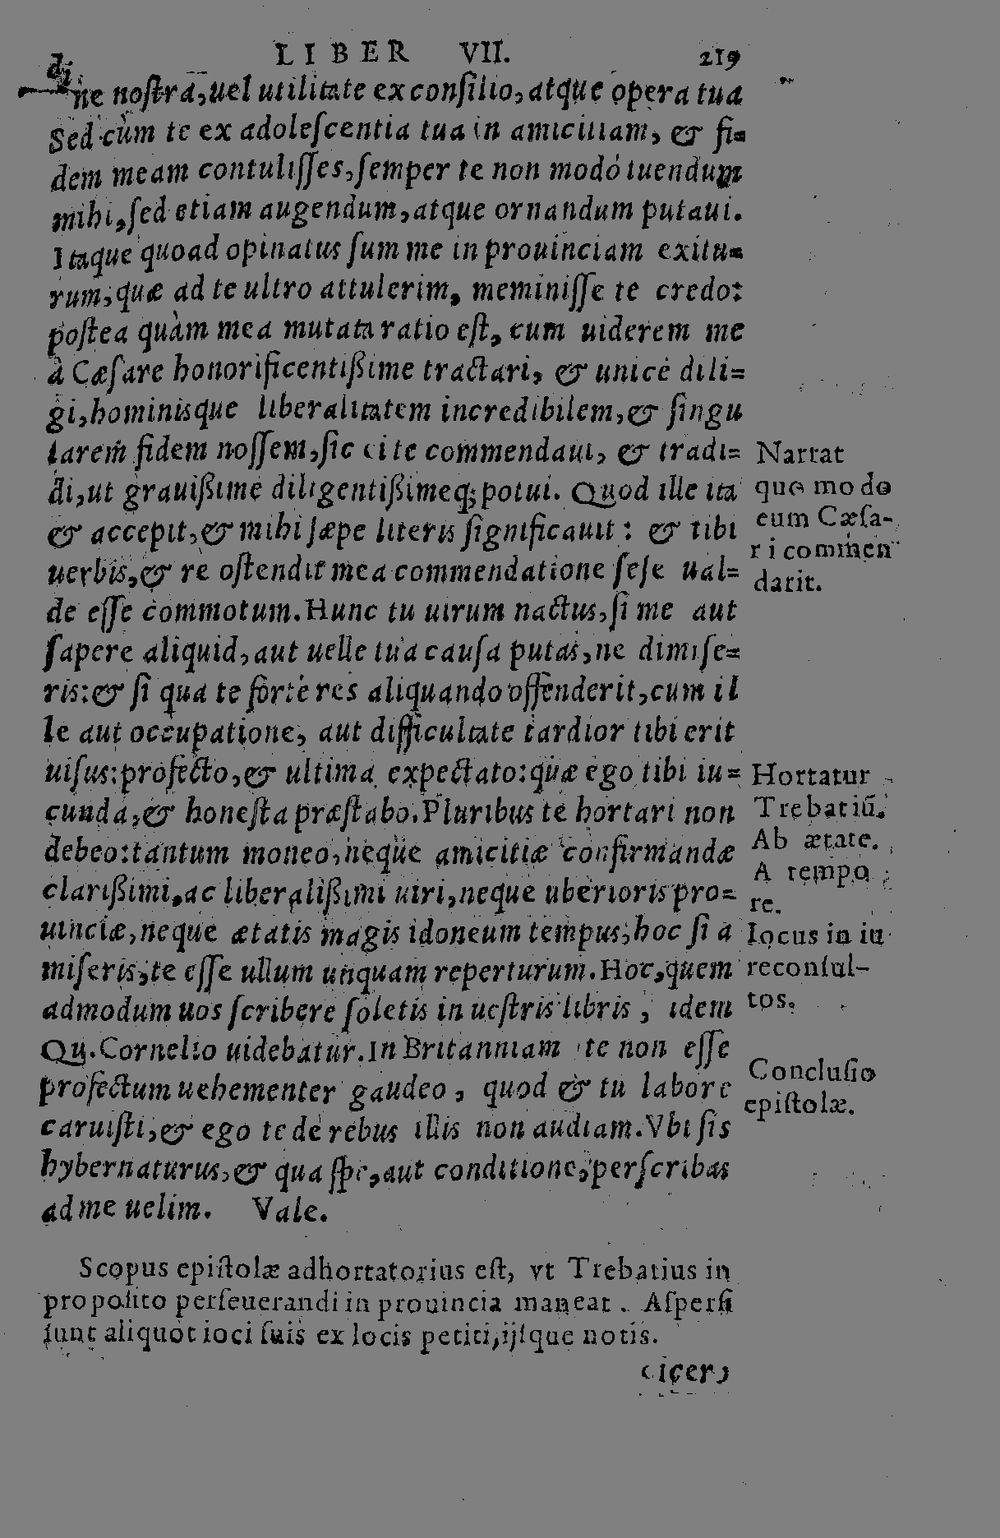 LIBER VII. 219
di
ne nostra, uel utilitate ex consilio, atque opera tua
Sed cùm te ex adolescentia tua in amicitiam, & fi-
dem meam contulisses, semper te non modò tuendum
mihi, sed etiam augendum, atque ornandum putaui.
Itaque quoad opinatus sum me in prouinciam exitu-
rum, quæ ad te ultro attulerim, meminisse te credo:
postea quàm mea mutata ratio est, cum uiderem me
à Cæsare honorificentißime tractari, & unicè dili-
gi, hominisque liberalitatem incredibilem, & singu
larem fidem nossem, sic ei te commendaui, & tradi-
di, ut grauißime diligentißimeq; potui. Quod ille ita
& accepit, & mihi sæpe literis significauit: & tibi
uerbis, & re ostendit mea commendatione sese ual-
de esse commotum. Hunc tu uirum nactus, si me aut
sapere aliquid, aut uelle tua causa putas, ne dimise-
ris: & si qua te fortè res aliquando offenderit, cum il
le aut occupatione, aut difficultate tardior tibi erit
uisus: profecto, & ultima expectato: quæ ego tibi iu-
cunda, & honesta præstabo. Pluribus te hortari non
debeo: tantum moneo, neque amicitiæ confirmandæ
clarißimi, ac liberalißimi uiri, neque uberioris pro-
uinciæ, neque ætatis magis idoneum tempus, hoc si a
miseris, te esse ullum unquam reperturum. Hoc, quem
admodum uos scribere soletis in uestris libris, idem
Qu. Cornelio uidebatur. In Britanniam te non esse
profectum uehementer gaudeo, quod & tu labore
caruisti, & ego te de rebus illis non audiam. Vbi sis
hybernaturus, & qua spe, aut conditione, perscribas
ad me uelim. Vale.
Narrat
quo modo
eum Cæsa-
ri commen
darit.
Hortatur
Trebatiū.
Ab ætate.
A tempo
re.
Iocus in iu
reconsul-
tos.
Conclusio
epistolæ.
Scopus epistolæ adhortatorius est, vt Trebatius in
proposito perseuerandi in prouincia maneat. Aspersi
sunt aliquot ioci suis ex locis petiti, ijsque notis.
Cicero